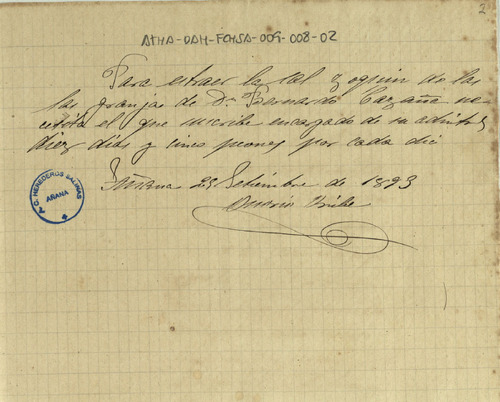 2
ATHA-DAH-FCHSA-009-008-02
Para estraer la sal y de las
las granjas de Dn. Bernardo ne-
cesita el que suscribe encargado de su
diez días y cinco peones por cada día
Añana 25 Setiembre de 1893
Uribe
C. HEREDEROS SALINAS
AÑANA